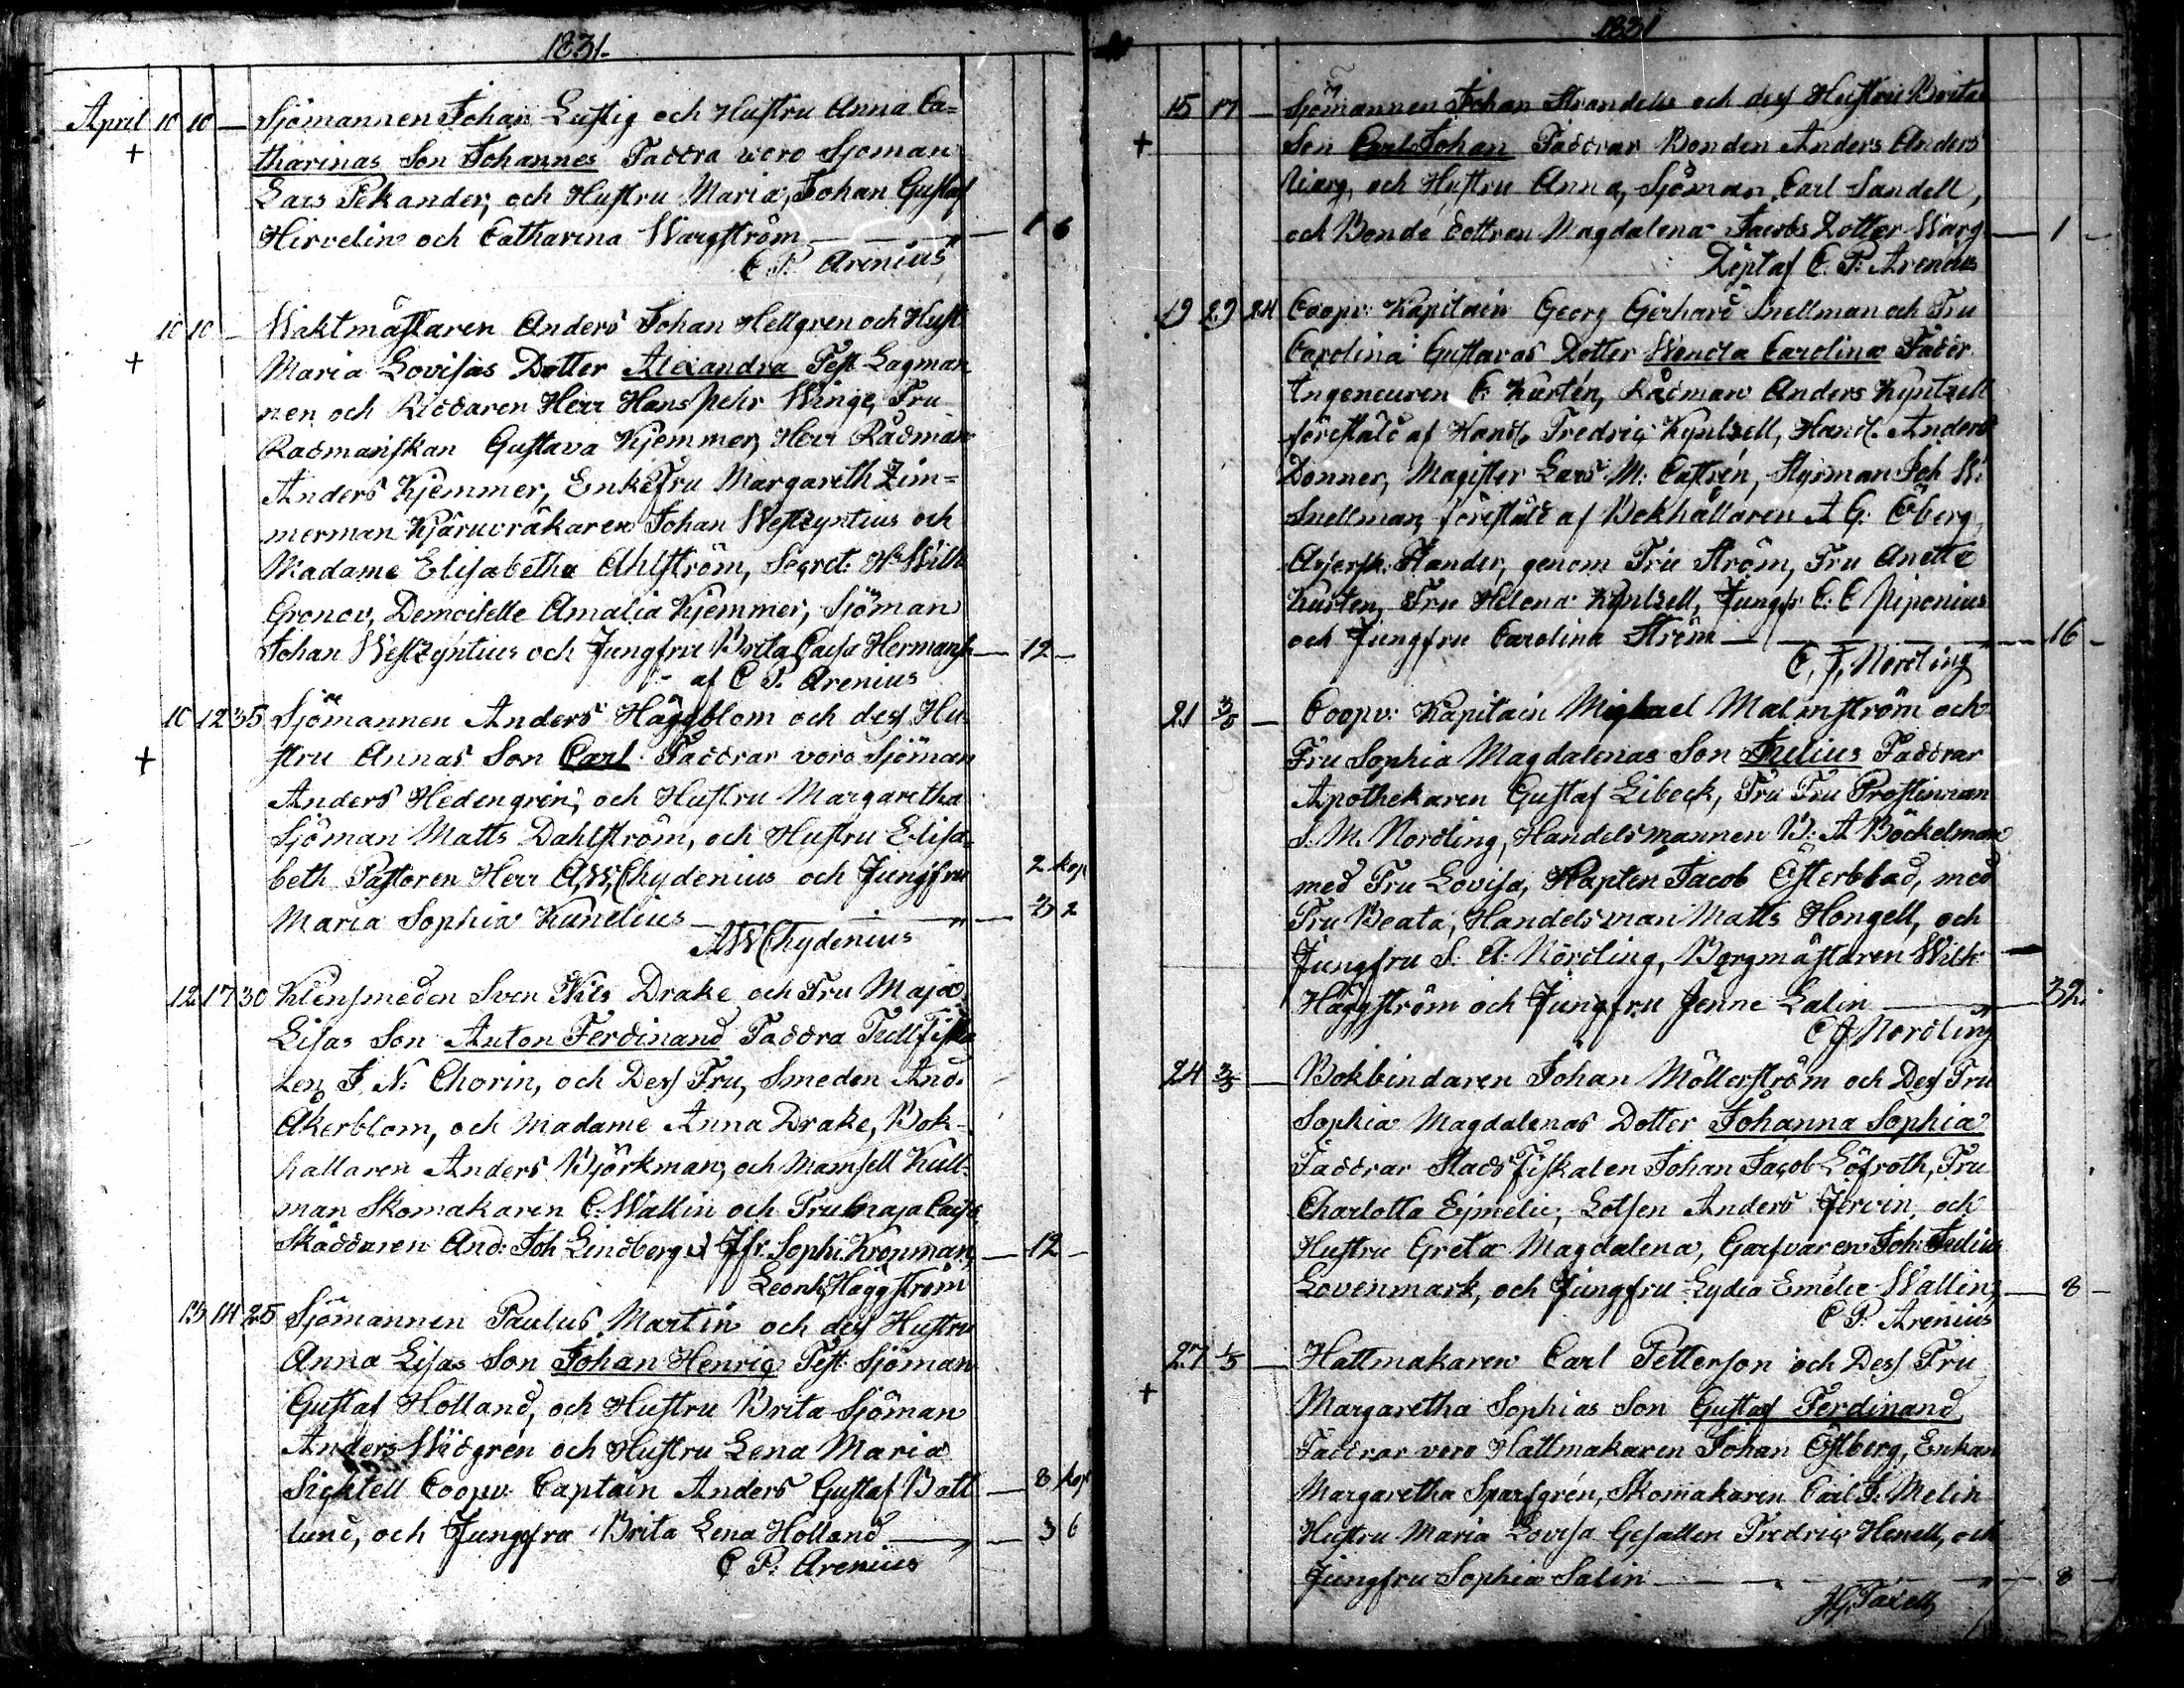 1831.
April 10 10 — Sjömannen Johan Lustig och Hustru Anna Ca=
+ tharinas Son Johannes Faddra voro Sjöman
Lars Pekander, och Hustru Maria, Johan Gustaf
Hirvelin och Catharina Wargström — 1 6
C. P. Arenius
10 10 — Waktmästaren Anders Johan Hellgren och Hust
+ Maria Lovisas Dotter Alexandra Test. Lagman
nen och Riddaren Herr Hans Pehr Winge, Fru
Rådmanskan Gustava Kjemmer, Herr Rådman
Anders Kjemmer, Enkefru Margareth Zim=
merman Johan Westzyntius och
Madame Elisabetha Ahlström, Secret. Hr Wilh
Gronov, Demoiselle Amalia Kjemmer, Sjöman
Johan Westzyntius och Jungfru Brita Caisa Hermans — 12 —
af C P. Arenius
10 12 35 Sjömannen Anders Häggblom och dess Hu-
+ stru Annas Son Carl Faddrar voro Sjöman
Anders Hedengrén, och Hustru Margaretha
Sjöman Matts Dahlström, och Hustru Elisa-
beth Pastoren Herr A,W,Chydenius och Jungfru 2 kop
Maria Sophia Kunelius — 2
AWChydenius
12 17 30 Klensmeden Sven Nils Drake och Fru Maja
Lisas Son Anton Ferdinand Faddra Tullfiska
len J. N. Chorin, och Dess Fru, Smeden And.
Åkerblom, och Madame Anna Drake, Bok-
hållaren Anders Björkman, och Mamsell Kull-
man Skomakaren C. Wallin och Fru Maja Caisa
Skäddaren And: Joh Lindberg Jfr. Soph: Kronman, — 12 —
Leonh Häggström
13 14 25 Sjömannen Paulus Martin och dess Hustru
Anna Lisas Son Johan Henric Test. Sjöman
Gustaf Holland, och Hustru Brita Sjöman
Anders Widgrén och Hustru Lena Maria
Sightell Coopv. Captain Anders Gustaf Batt — 8 kop
lund, och Jungfru Brita Lena Holland — 3 6
C P. Arenius
1831
15 17 — Sjömannen Johan Strandell och dess Hustru Britas
+ Son Carl Johan Faddrar Bonden Anders Anders
Wiarg, och Hustru Anna, Sjöman Carl Sandell,
och Bonde dottren Magdalena Jacobs Dotter Warg — 1 —
Döptaf C. P. Arenius
19 29 24 Coopv: Kapitain Georg Gerhard Snellman och Fru
Carolina Gustavas Dotter Wendla Carolina Faddr.
Ingeneuren C. Kurtén, Rådman Anders Kyntzell
föreställd af Handl. Fredric Kyntzell, Handl. Anders
Donner, Magister Lars M. Castrén, Styrman Joh W:
Snellman, föreställd af Bokhållaren A G: Öberg,
Flander, genom Fru Ström, Fru Anette
Kurten, Fru Helena Kyntzell, Jungfr C. C Piponius
och Jungfru Carolina Ström — 16 —
C. J. Nordling
21 3/5 — Coopv: Kapitain Michael Malmström och
Fru Sophia Magdalenas Son Julius Faddrar
Apothekaren Gustaf Libeck, Fru Fru Prostinnan
S. M. Nordling, Handelsmannen B: A Böckelman
med Fru Lovisa, Kapten Jacob Österblad, med
Fru Beata, Handelsman Matts Hongell, och
Jungfru S. A: Nordling, Borgmästaren Wilh:
Häggström och Jungfru Jenne Lalin — 32.
C J Nordling
24 3/5 — Bokbindaren Johan Möllerström och Dess Fru
Sophia Magdalenas Dotter Johanna Sophia
Faddrar Stads Fiskalen Johan Jacob Löfroth, Fru
Charlotta Eijmelie, Lotsen Anders Jervin och
Hustru Greta Magdalena, Garfvaren Joh: Julius
Lovenmark, och Jungfru Lydia Emelie Wallin, — 8 —
C P. Arenius
27 1/5 — Hattmakaren Carl Petterson och Dess Fru
+ Margaretha Sophias Son Gustaf Ferdinand
Faddrar voro Hattmakaren Johan Östberg, Enkan
Margaretha Sparfgrén, Skomakaren Carl J. Melin
Hustru Maria Lovisa Gesällen Fredric Henell, och
Jungfru Sophia Salin — 8 —